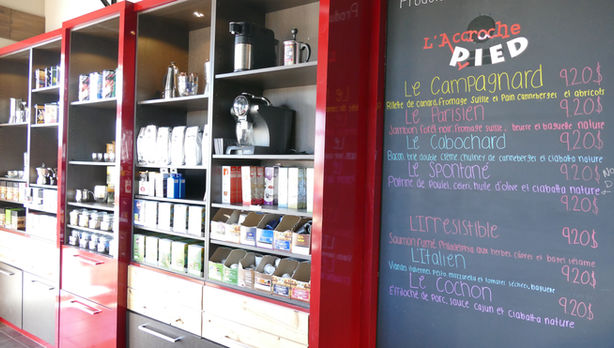 Produ
L'Accroche
PIED
Le Campagnard 9.20$
Rillette de canard, Fromage Suisse et Pain canneberges et abricots
Le Parisien 9.20$
Jambon Forêt noire, Fromage Suisse, beurre et baguette nature
Le Cabochard 9.20$
Bacon, brie double crème, chutney de canneberge et ciabatta nature
Le Spontané 9.20$
Poitrine de Poulet, céleri, huile d'olive et ciabatta nature
9.20$
L'Irrésistible 9.20$
Saumon Fumé Philadelphia aux herbes, câpres et bagel sésame
L'Italien 9.20$
Viandes italiennes, Pesto, mozzarella et tomates séchées, baguette
Le Cochon 9.20$
Effiloché de Porc, sauce Cajun et ciabatta nature